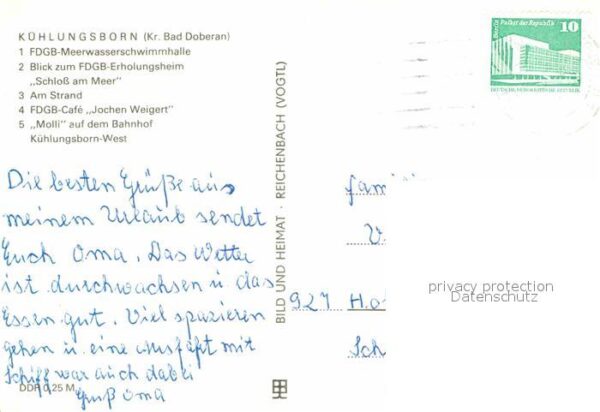 KÜHLUNGSBORN (Kr. Bad Doberan)
1 FDGB-Meerwasserschwimmhalle
2 Blick zum FDGB-Erholungsheim
„Schloß am Meer"
3 Am Strand
4 FDGB-Café „Jochen Weigert"
5 „Molli" auf dem Bahnhof
Kühlungsborn-West
Die besten Grüße aus
meinem Urlaub sendet
Euch Oma. Das Wetter
ist durchwachsen u das
Essen gut. Viel spazieren
gehen u. eine mit
Schiff war auch dabei
Gruß Oma
DDR 0,25 M
BILD UND HEIMAT · REICHENBACH (VOGTL)
Berlin Palast der Republik
10
DEUTSCHE DEMOKRATISCHE REPUBLIK
Fami
V
927 Ho
Sch
privacy protection
Datenschutz